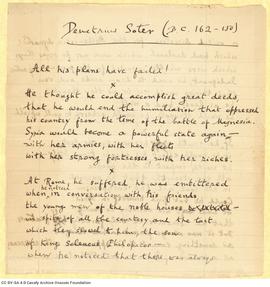 Demetrius Soter (B.C. 162-150)
All his plans have failed!
x
He thought he could accomplish great deeds,
that he would end the humiliation that oppressed
his country from the time of the battle of Magnesia.
Syria would become a powerful state again –
with her armies, with her fleets
with her strong fortresses, with her riches.
x
At Rome, he suffered he was embittered
when in conversation with his friends
the young men of the noble houses
in spite of all the courtesy and the tact
which they showed to him, the son
of King Seleucus Philopator –
when he noticed that there was always
CC BY-SA 4.0 Cavafy Archive Onassis Foundation